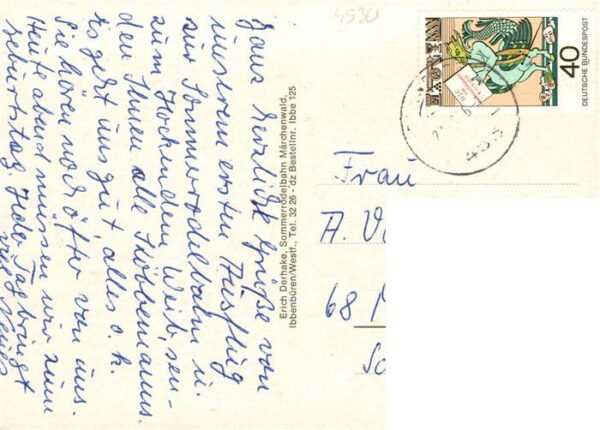 4530
Ganz herzliche Grüße von
unserem ersten Ausflug
zur Sommerrodelbahn u.
zum Hockendem Weib, sen-
den Ihnen alle
Es geht uns gut alles o. k.
Sie hören noch öfter von uns.
Heute abend müssen wir zum
Geburtstag. Jeder Tag bringt
viel Neues
Erich Derhake, Sommerrodelbahn Märchenwald,
Ibbenbüren/Westf., Tel. 32 26 - dz Bestellnr. Ibbe 125
40
DEUTSCHE BUNDESPOST
Frau
A.
68